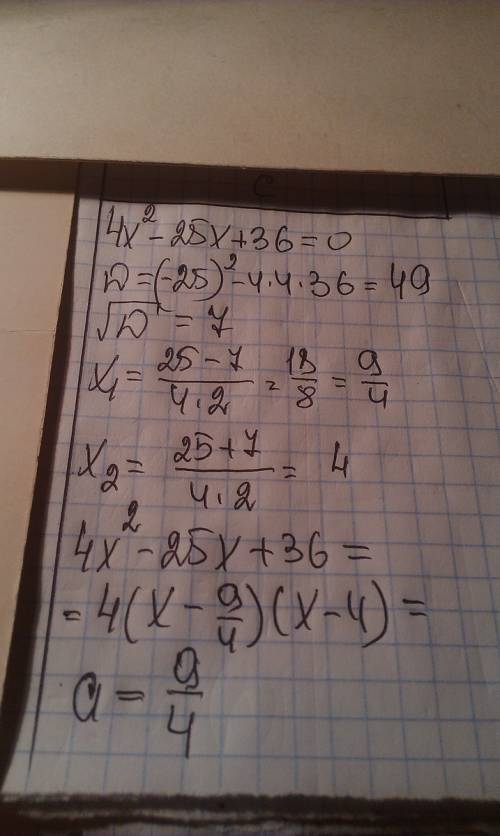 C
4x² - 25x + 36 = 0
D = (-25)² - 4·4·36 = 49
√D = 7
x₁ = (25 - 7)/(4·2) = 18/8 = 9/4
x₂ = (25 + 7)/(4·2) = 4
4x² - 25x + 36 =
= 4(x - 9/4)(x - 4) =
a = 9/4